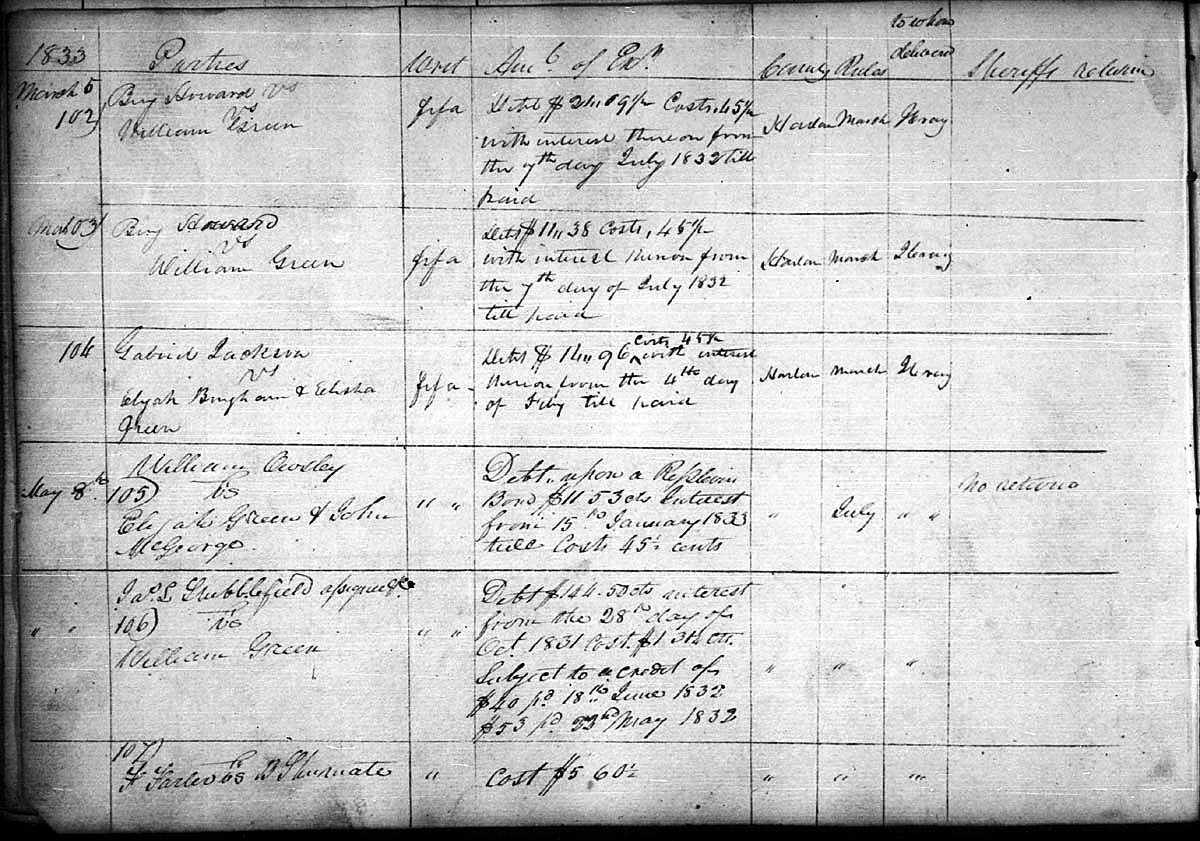 1833 Parties Writ Amt of Exn County Rules to whom delivered Sheriffs return
March 5
102) Benj Howard vs
William Green
fifa
Debt $ 21,,09½ Costs, 45½
with interest thereon from
the 7th day July 1832 till
paid
Harlan March
103) Benj Howard
vs
William Green
fifa
Debt $ 11,, 38 Costs, 45½
with interest thereon from
the 7th day of July 1832
till paid
Harlan March
104 Gabriel Jackson
vs
Elijah Bingham & Elisha
Green
fifa
Debt $ 14,, 96 Costs 45½ with interest
thereon from the 4th day
of Feby till paid
Harlan March
May 8th
William Owsley
105) vs
Elijah Green & John
McGeorge
" "
Debt upon a Replevin
Bond $11 53cts Interest
from 15th January 1833
till Costs 45½ cents
" July " "
No return
" "
Jas. L Stubblefield assignee &c
106) vs
William Green
" "
Debt $144.50cts interest
from the 28th day of
Oct 1831 Cost $1.31¼ cts.
Subject to a credit of
$40 pd 18th June 1832
$53 pd May 1832
" " "
107)
vs
"
Cost $5 60½
" " "